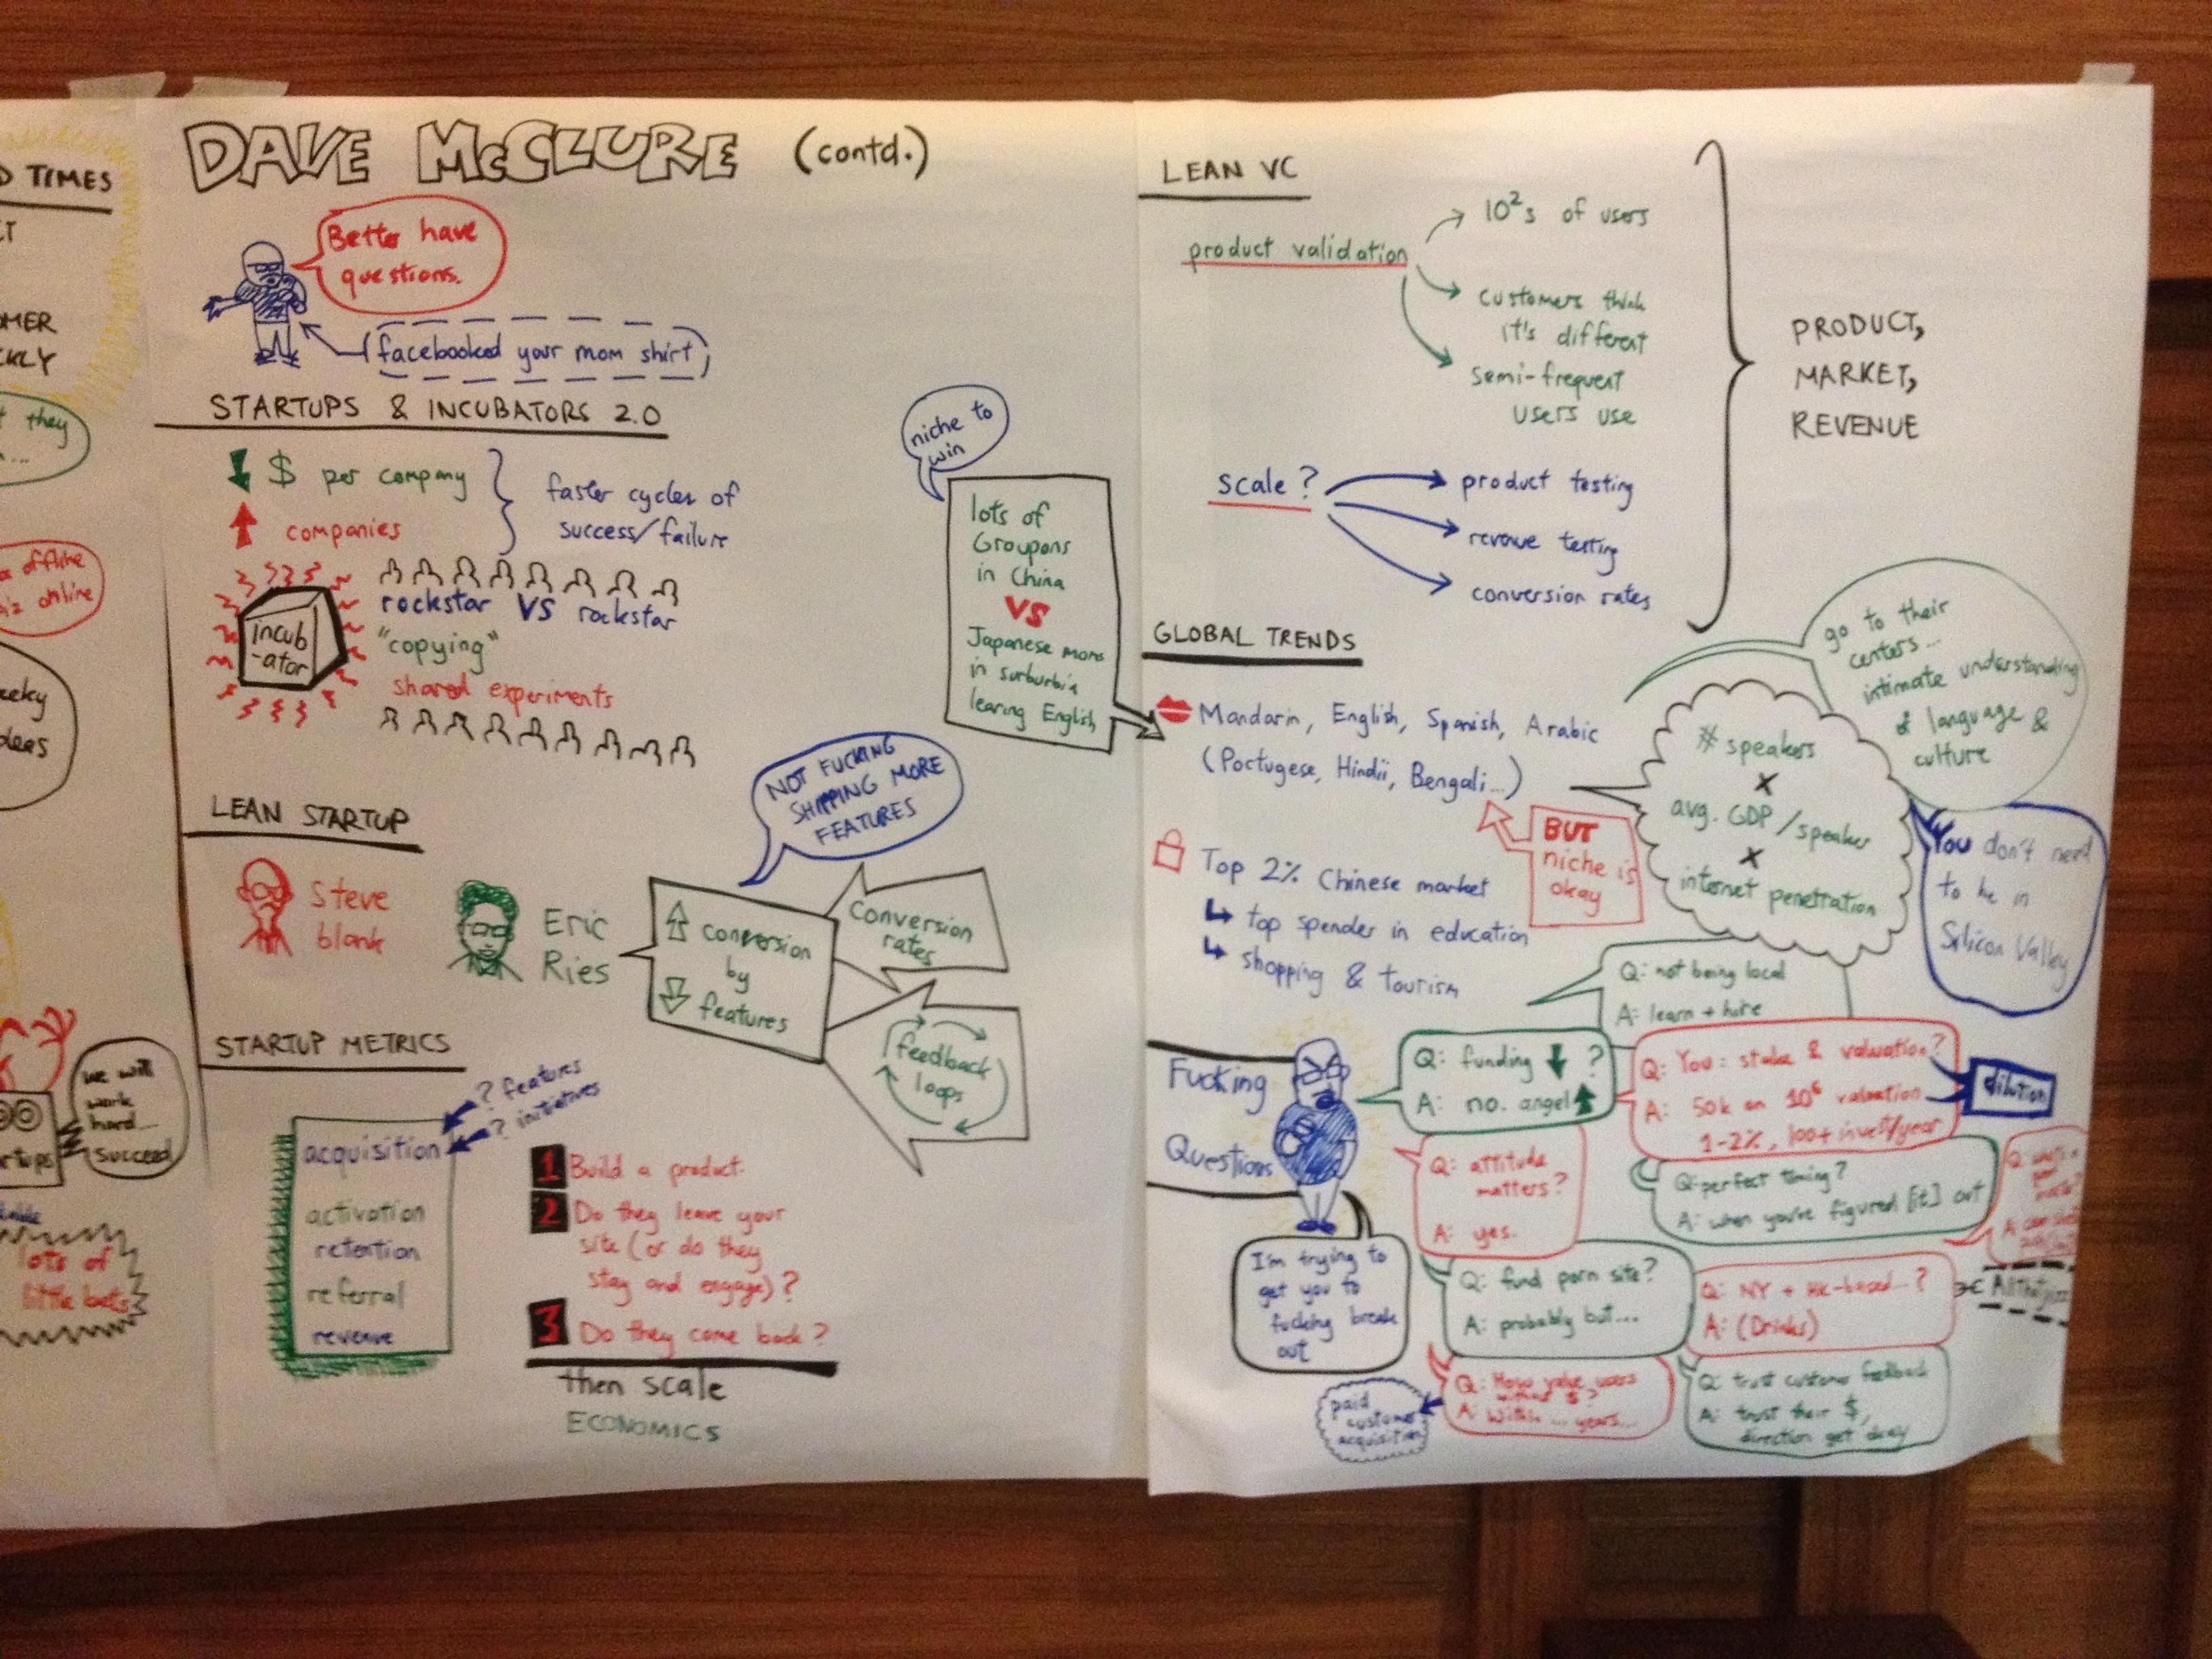 D TIMES
OMER
CKLY
they
offline
biz online
eeky
deas
we will
work
hard...
succeed
rtups
lots of
little bets
DAVE McCLURE (contd.)
Better have
questions.
facebooked your mom shirt
STARTUPS & INCUBATORS 2.0
$ per company
companies
faster cycles of
success/failure
incub
-ator
rockstar VS rockstar
"copying"
shared experiments
LEAN STARTUP
Steve
blank
Eric
Ries
NOT FUCKING
SHIPPING MORE
FEATURES
conversion
by
features
Conversion
rates
feedback
loops
STARTUP METRICS
? features
? initiatives
acquisition
activation
retention
referral
revenue
1 Build a product.
2 Do they leave your
site (or do they
stay and engage)?
3 Do they come back?
then scale
ECONOMICS
niche to
win
lots of
Groupons
in China
VS
Japanese moms
in surburbia
learing English
LEAN VC
product validation
10²s of users
customers think
it's different
semi-frequent
users use
scale?
product testing
revenue testing
conversion rates
PRODUCT,
MARKET,
REVENUE
GLOBAL TRENDS
Mandarin, English, Spanish, Arabic
(Portugese, Hindii, Bengali...)
BUT
niche is
okay
# speakers
X
avg. GDP/speaker
X
internet penetration
go to their
centers...
intimate understanding
of language &
culture
You don't need
to be in
Silicon Valley
Top 2% Chinese market
top spender in education
shopping & tourism
Q: not being local
A: learn + hire
Fucking
Questions
I'm trying to
get you to
fucking break
out
Q: funding ?
A: no. angel
Q: You: stake & valuation?
A: 50k on 10⁶ valuation
1-2%, 100+ invest/year
dilution
Q: attitude
matters?
A: yes.
Q: perfect timing?
A: when you've figured [it] out
Q: fund porn site?
A: probably but...
Q: NY + HK-based...?
A: (Drinks)
Q: How value users
without $?
A: Within ... years...
paid
customer
acquisition
Q: trust customer feedback
A: trust their $,
direction get okay